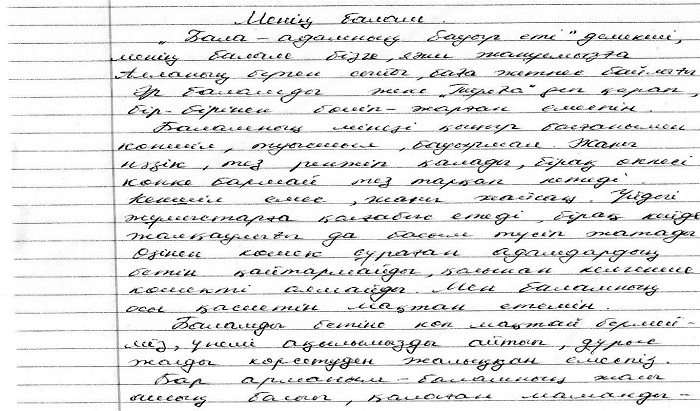 Менің балам.
„Бала – адамның бауыр еті" демекші,
менің балам бізге, яғни жанұямызға
Алланың берген сыйы, баға жетпес байлығы
Әр баламды жеке „Тұлға" деп қарап,
бір-бірінен бөліп-жарған емеспін.
Баламның мінезі қоңыр болғанымен
көңілі, туысшыл, бауырмал. Жаны
нәзік, тез ренжіп қалады, бірақ өкпесі
көпке бармай тез тарқап кетеді
кекшіл емес, жаны жайсаң. Үйдегі
жұмыстарға қолғабыс етеді, бірақ кейде
жалқаулығы да басым түсіп жатады
Өзінен көмек сұраған адамдардың
бетін қайтармайды, қолынан келгенше
көмекті аямайды. Мен баламның
осы қасиетін мақтан етемін.
Баламды бетіне көп мақтай бермей-
міз, үнемі ақылымызды айтып, дұрыс
жолды көрсетуден жалыққан емеспіз.
Бар арманым – баламның жолы
ашық болып, қалаған маманды-